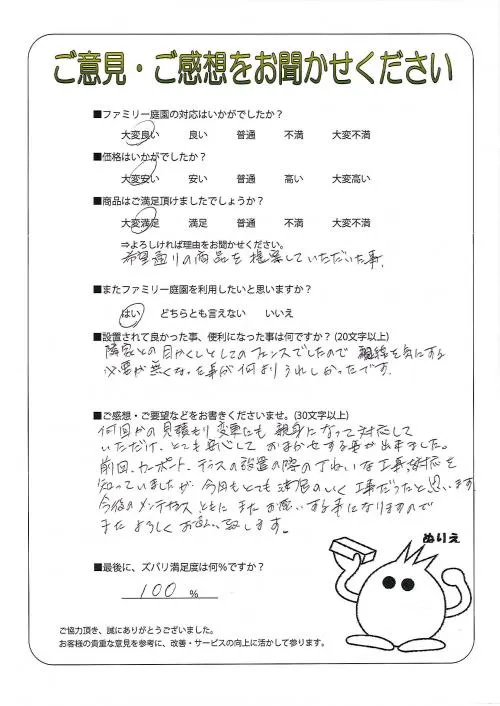 ご意見・ご感想をお聞かせください
■ファミリー庭園の対応はいかがでしたか？
大変良い 良い 普通 不満 大変不満
■価格はいかがでしたか？
大変安い 安い 普通 高い 大変高い
■商品はご満足頂けましたでしょうか？
大変満足 満足 普通 不満 大変不満
⇒よろしければ理由をお聞かせください。
希望通りの商品を提案していただいた事。
■またファミリー庭園を利用したいと思いますか？
はい どちらとも言えない いいえ
■設置されて良かった事、便利になった事は何ですか？(20文字以上)
隣家との目かくしとしてのフェンスでしたので視線を気にする
必要が無くなった事が何よりうれしかったです。
■ご感想・ご要望などをお書きくださいませ。(30文字以上)
何回かの見積もり変更にも親身になって対応して
いただけ、とても安心しておまかせする事が出来ました。
前回、カーポート、テラスの設置の際のていねいな工事、対応を
知っていましたが今回もとても満足のいく工事だったと思います。
今後のメンテナンスともにまたお願いする事になりますので
またよろしくお願い致します。
ぬりえ
■最後に、ズバリ満足度は何％ですか？
100 %
ご協力頂き、誠にありがとうございました。
お客様の貴重な意見を参考に、改善・サービスの向上に活かして参ります。